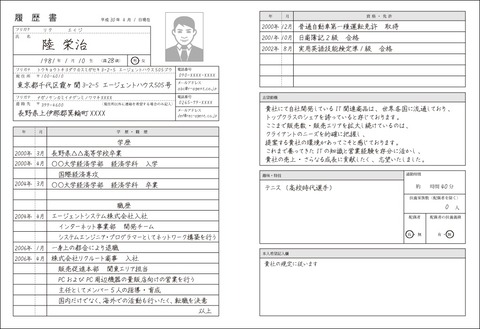 履歴書
平成22年4月1日現在
フリガナ
リク エイジ
氏名
陸 栄治
1981年1月10日 (満28歳)
男・女
フリガナ
電話番号
〒100-6010
090-XXXX-XXXX
東京都千代田区霞ヶ関3-2-5 エージェントハウス505号
メールアドレス
フリガナ
電話番号
〒399-4600
0265-79-XXXX
長野県上伊那郡箕輪町XXXX
メールアドレス
年
月
学歴・職歴
学歴
2000年 3月 長野県△△高等学校卒業
2000年 4月 〇〇大学経済学部 経済学科 入学
国際経済専攻
2004年 3月 〇〇大学経済学部 経済学科 卒業
職歴
2004年 4月 エージェントシステム株式会社入社
インターネット事業部 開発チーム
システムエンジニア・プログラマーとしてネットワーク構築を行う
2006年 1月 一身上の都合により退職
2006年 4月 株式会社リクルート商事 入社
販売促進本部 関東エリア担当
PCおよびPC周辺機器の量販店向けの営業を行う
主任としてメンバー5人の指導・育成
国内だけでなく、海外での活動も行いたく、転職を決意
以上
年
月
資格・免許
2000年 12月 普通自動車第一種運転免許 取得
2001年 10月 日商簿記2級 合格
2002年 8月 実用英語技能検定準1級 合格
志望動機
貴社にて自社開発しているIT関連商品は、世界各国に流通しており、
トップクラスのシェアを誇っていると存じております。
ここまで販売数・販売エリアを拡大し続けているのは、
クライアントのニーズを的確に把握し、
提案する貴社の環境があってこそと感じております。
これまで養ってきたITの知識と営業経験を存分に活かし、
貴社の売上・さらなる成長に貢献したく、志望いたしました。
趣味・特技
テニス(高校時代選手)
通勤時間
約 時間40分
扶養家族数(配偶者を除く)
0 人
配偶者
配偶者の扶養義務
有・無
有・無
本人希望記入欄
貴社の規定に従います